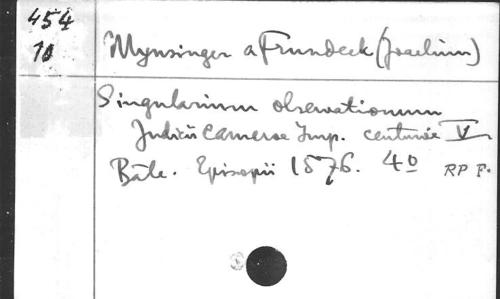 454
10
Mynsinger a Frundeck (Joachim)
Singularium observationum
Judicii Camerae Imp. centuriae V
Bâle. Episopii 1576. 4o RP F.